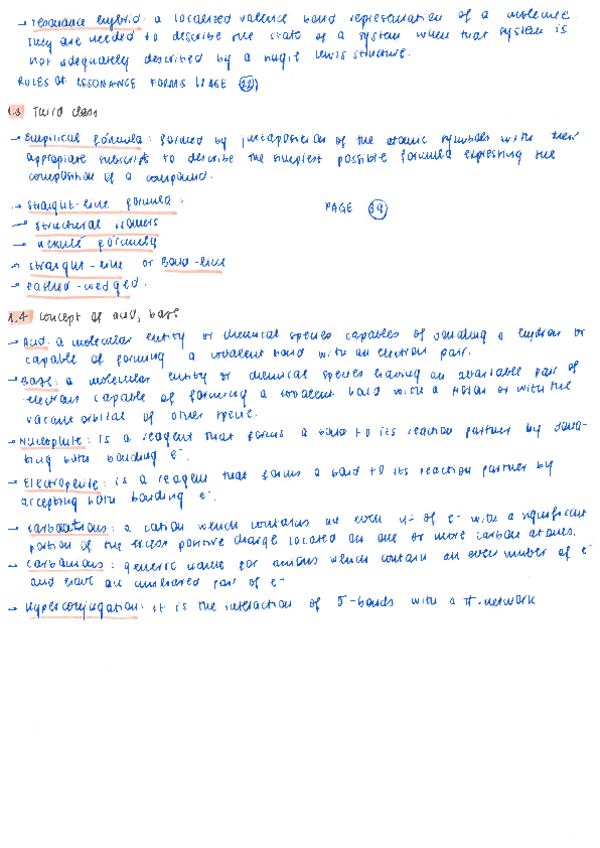 → resonance hybrid: a localized valence bond representation of a molecule.
They are needed to describe the state of a system when that system is
not adequately described by a single Lewis structure.
RULES OF RESONANCE FORMS (PAGE
1.3 Third class
→ Empirical formula: formed by juxtaposition of the atomic symbols with their
appropiate subscripts to describe the simplest possible formula expressing the
composition of a compound.
→ Straight-line formula: PAGE 39
→ Structural isomers
→ Kekulé formula
→ Straight-line or Bond-line
→ Dashed-wedged.
1.4 Concept of acid, base
→ Acid: a molecular entity or chemical species capables of donating a hydron or
capable of forming a covalent bond with an electron pair.
→ Base: a molecular entity or chemical species having an available pair of
electrons capable of forming a covalent bond with a or with the
vacant orbital of other specie.
→ Nucleophile: is a reagent that forms a bond to its reaction partner by dona-
ting both bonding e⁻.
→ Electrophile: is a reagent that forms a bond to its reaction partner by
accepting both bonding e⁻.
→ Carbocations: a cation which contains an even nº of e⁻ with a significant
portion of the excess positive charge located on one or more carbon atoms.
→ Carbanions: generic name for anions which contain an even number of e⁻
and have an unshared pair of e⁻
→ Hyperconjugation: it is the interaction of σ-bonds with a π-network